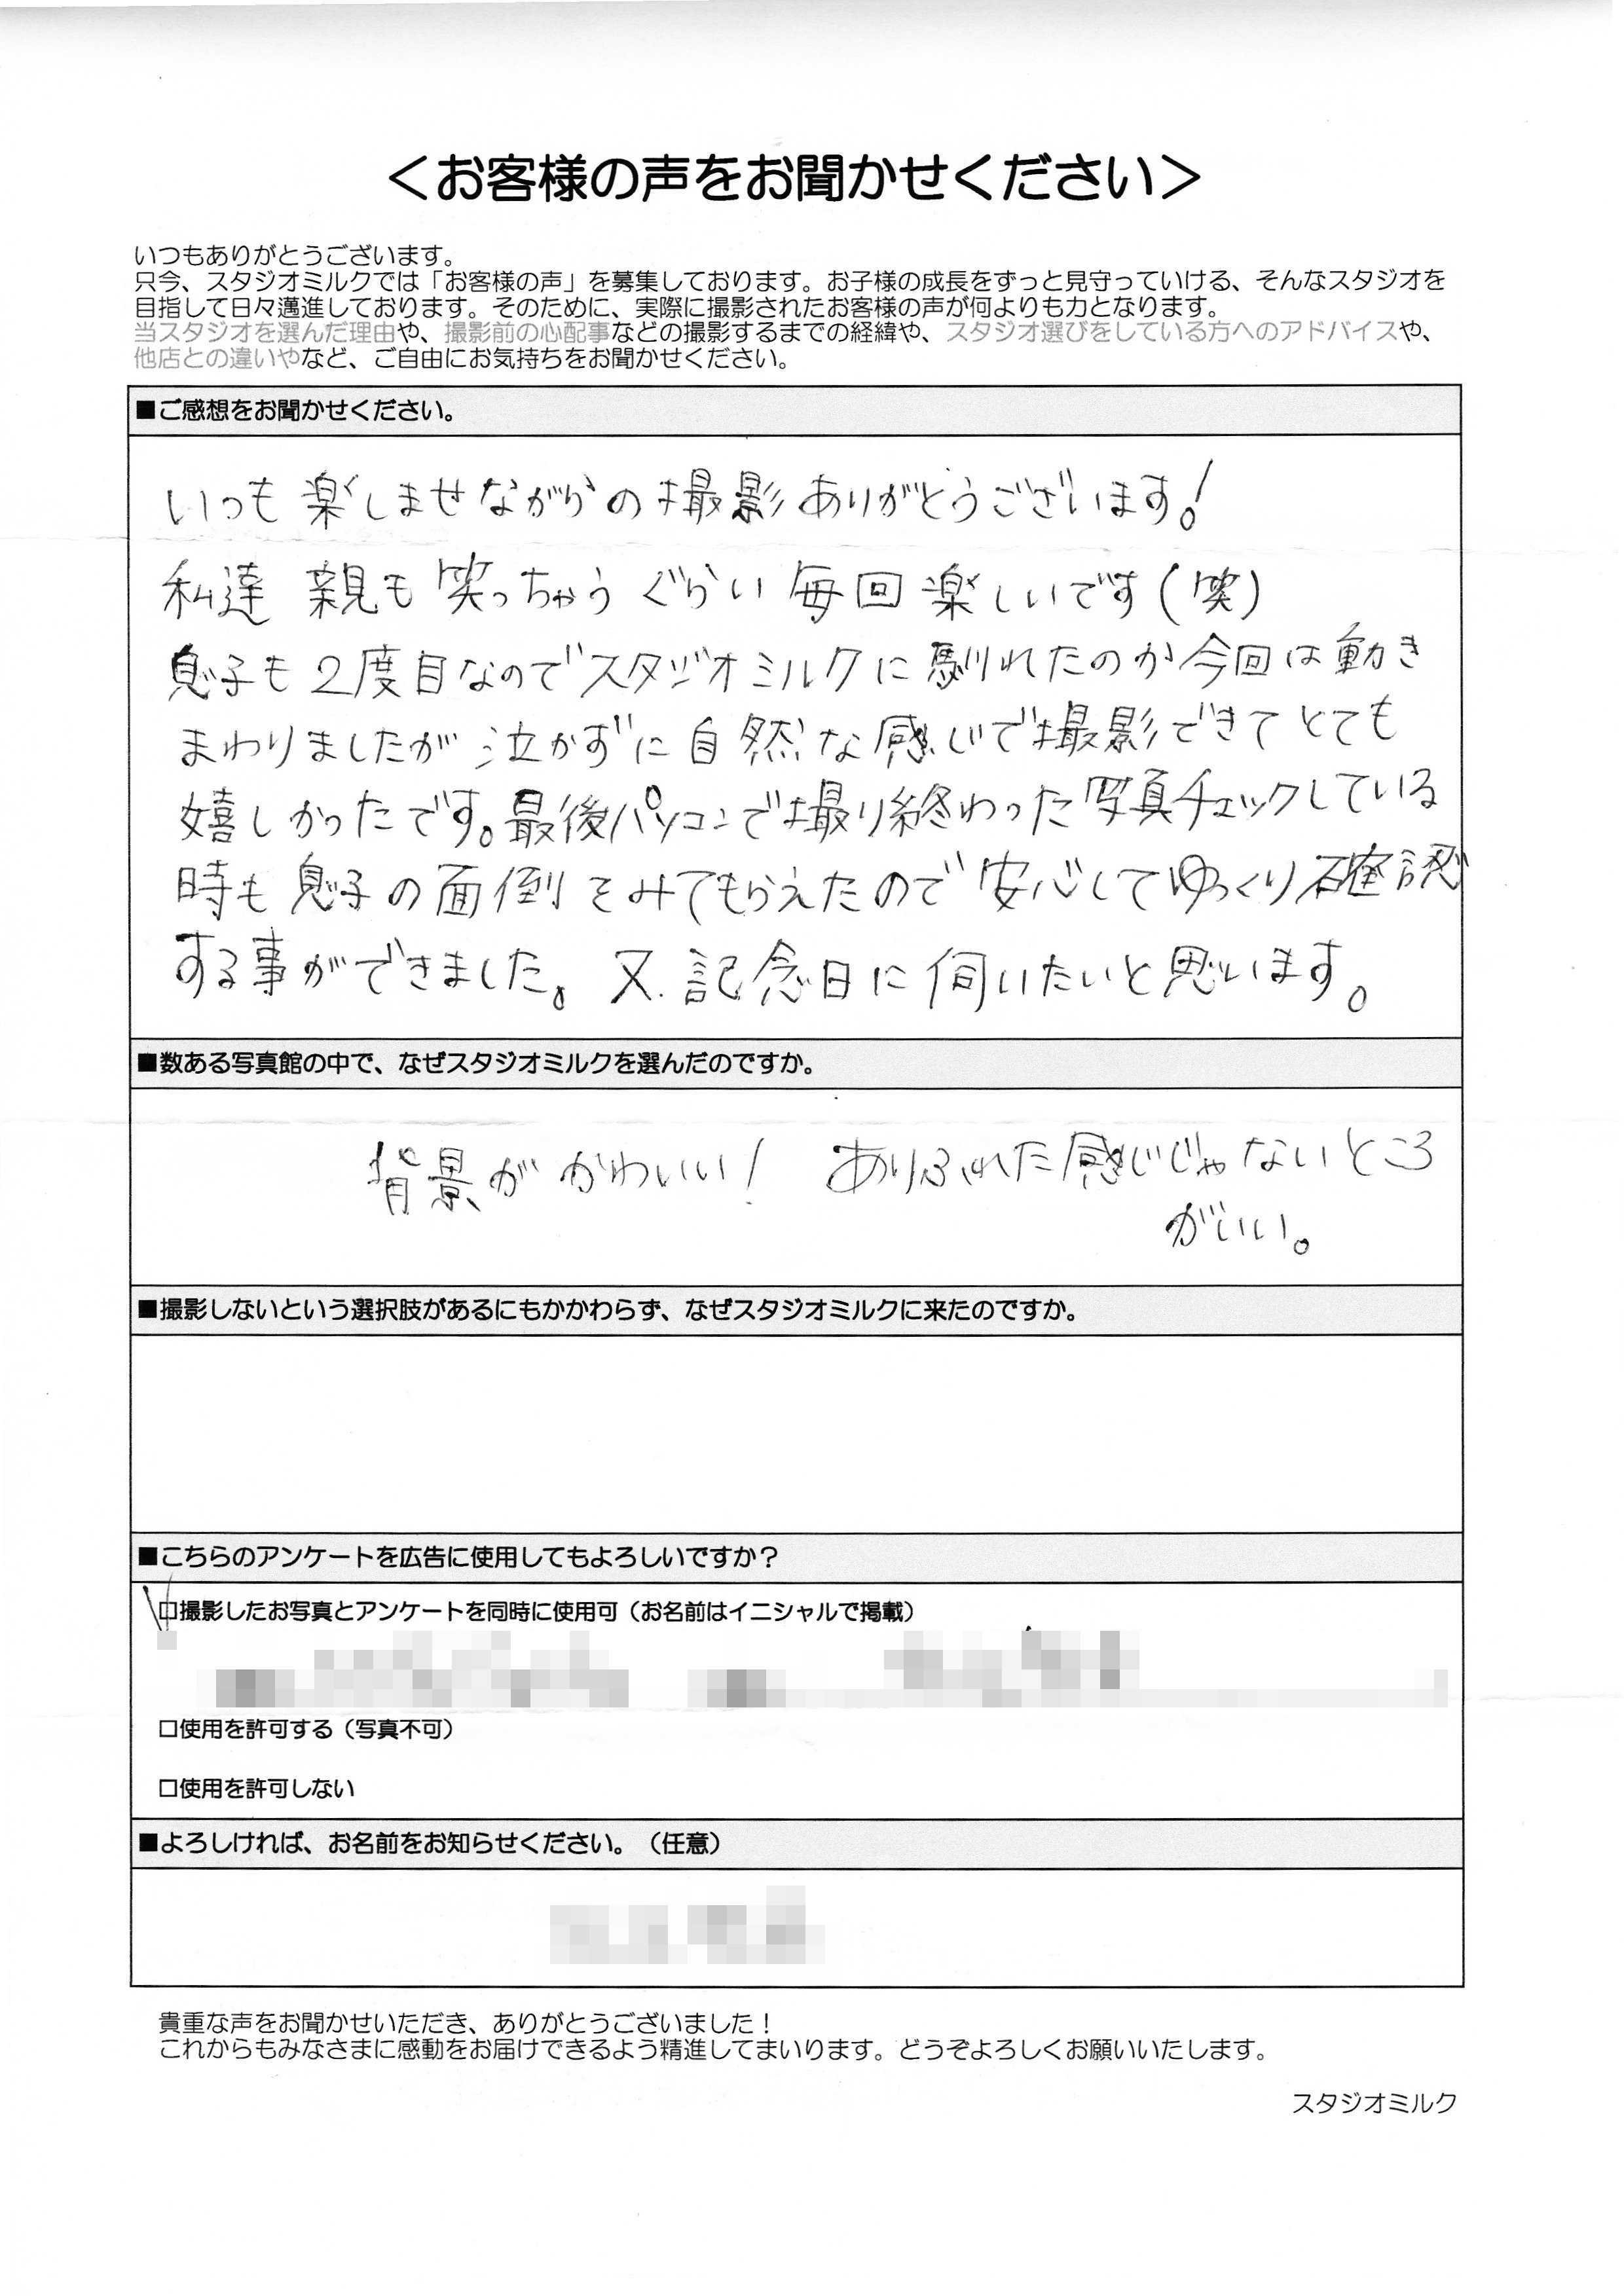 ＜お客様の声をお聞かせください＞
いつもありがとうございます。
只今、スタジオミルクでは「お客様の声」を募集しております。お子様の成長をずっと見守っていける、そんなスタジオを
目指して日々邁進しております。そのために、実際に撮影されたお客様の声が何よりも力となります。
当スタジオを選んだ理由や、撮影前の心配事などの撮影するまでの経緯や、スタジオ選びをしている方へのアドバイスや、
他店との違いやなど、ご自由にお気持ちをお聞かせください。
■ご感想をお聞かせください。
いつも楽しませながらの撮影ありがとうございます！
私達 親も笑っちゃうぐらい毎回楽しいです(笑)
息子も2度目なのでスタジオミルクに馴れたのか今回は動き
まわりましたが泣かずに自然な感じで撮影できてとても
嬉しかったです。最後パソコンで撮り終わった写真チェックしている
時も息子の面倒をみてもらえたので安心してゆっくり確認
する事ができました。又、記念日に伺いたいと思います。
■数ある写真館の中で、なぜスタジオミルクを選んだのですか。
背景がかわいい！ ありふれた感じじゃないところ
がいい。
■撮影しないという選択肢があるにもかかわらず、なぜスタジオミルクに来たのですか。
■こちらのアンケートを広告に使用してもよろしいですか？
□撮影したお写真とアンケートを同時に使用可（お名前はイニシャルで掲載）
□使用を許可する（写真不可）
□使用を許可しない
■よろしければ、お名前をお知らせください。（任意）
貴重な声をお聞かせいただき、ありがとうございました！
これからもみなさまに感動をお届けできるよう精進してまいります。どうぞよろしくお願いいたします。
スタジオミルク